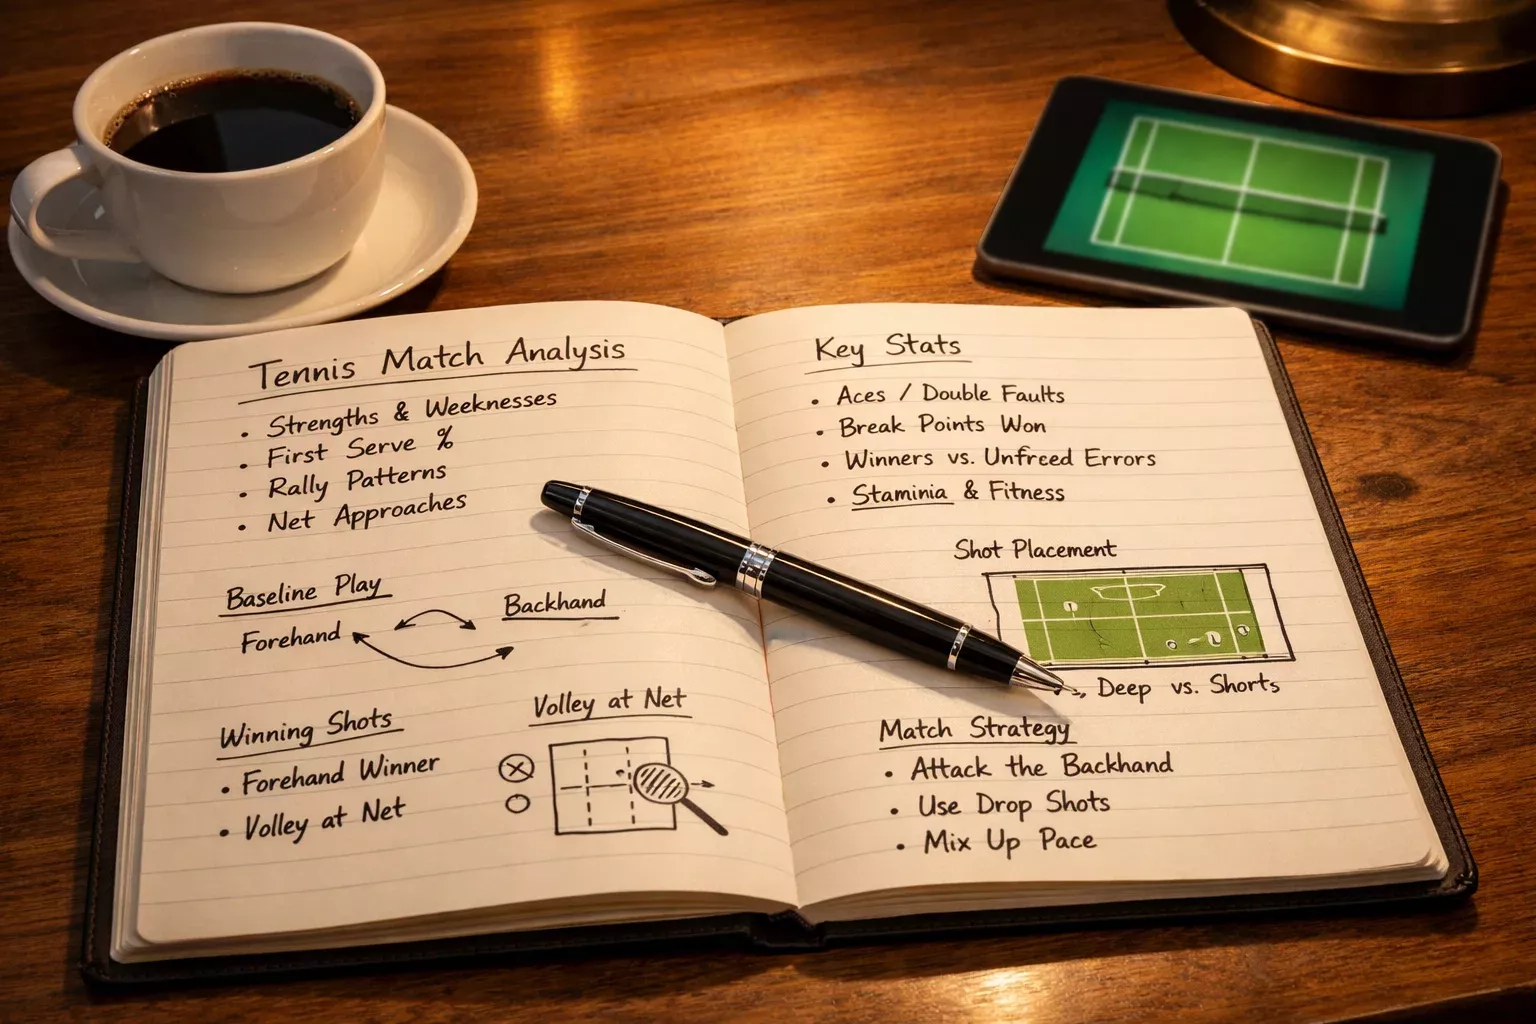 Tennis Match Analysis
• Strengths & Weeknesses
• First Serve %
• Rally Patterns
• Net Approaches
Baseline Play
Forehand
Backhand
Winning Shots
• Forehand Winner
• Volley at Net
Volley at Net
Key Stats
• Aces / Double Faults
• Break Points Won
• Winners vs. Unfrced Errors
• Staminia & Fitness
Shot Placement
Deep vs. Shorts
Match Strategy
• Attack the Backhand
• Use Drop Shots
• Mix Up Pace